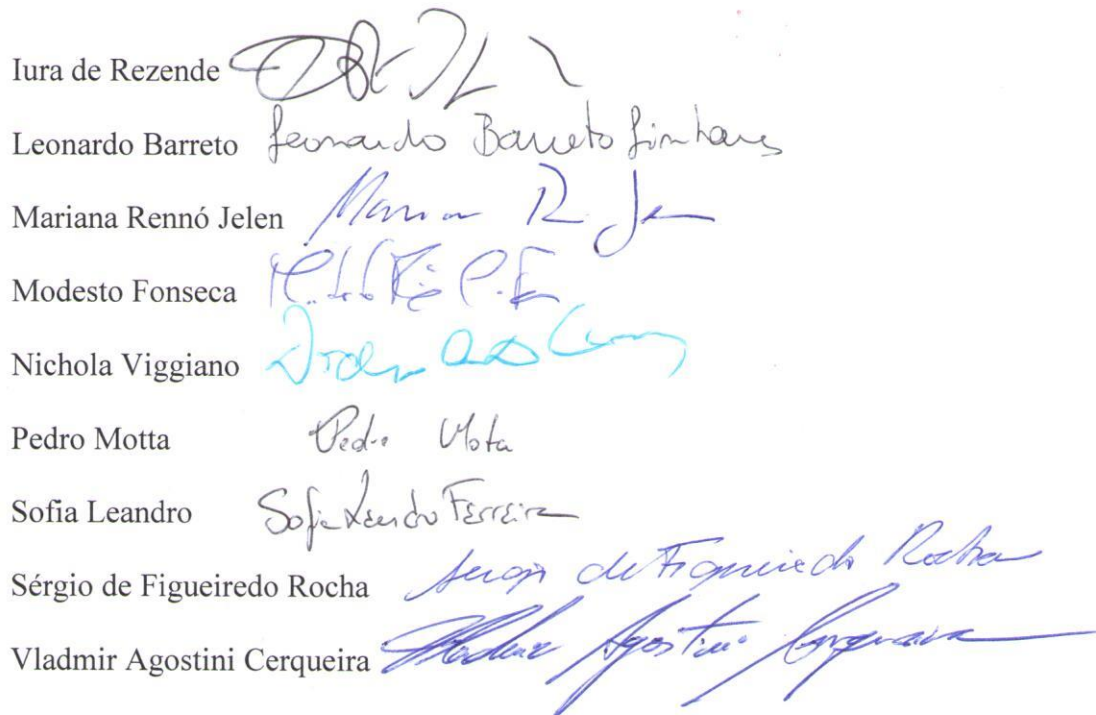 Iura de Rezende
Leonardo Barreto Leonardo Barreto Linhares
Mariana Rennó Jelen
Modesto Fonseca
Nichola Viggiano
Pedro Motta Pedro Mota
Sofia Leandro Sofia Leandro Ferreira
Sérgio de Figueiredo Rocha Sergio de Figueiredo Rocha
Vladmir Agostini Cerqueira Vladmir Agostini Cerqueira